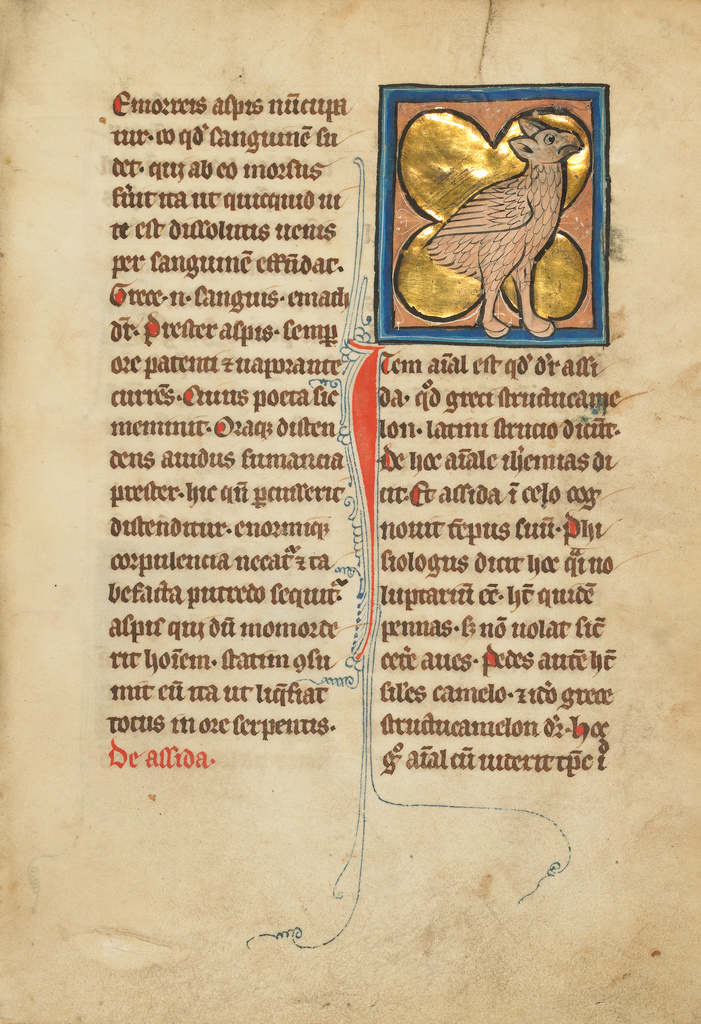 Emorreis aspis nūcupa
tur· eo qd̓ sanguinē su
det· qui ab eo morsus
fūit ita ut quicquid ui
te est dissolutis uenis
per sanguinē effūdat·
Grece·n·sanguis·emath
dr̄· Prester aspis· semꝑ
ore patenti ⁊ uaporante
currēs· Cuius poeta sic
meminit· Oraqꝫ disten
dens auidus fumancia
prester· hic qn̄ ꝑcusserit
distenditur· enormiqꝫ
corpulencia necat̃ ⁊ ta
befacta putredo sequit̃·
aspis qui dū momorde
rit hoīem· statim ꝯsu
mit eū ita ut liq̄fiat
totus in ore serpentis·
De assida·
Item aīal est qd̓ dr̄ assi
da· qd̓ greci structicame
lon· latini strucio dicūt·
De hoc aīale iħemias di
cit· Et assida ī celo cog
nouit tēpus suū· Phi
siologus dicit hoc qͣi uo
luptariū eē· hꝫ quidē
pennas· sꝫ nō uolat sic̄
cet̓e aues· Pedes autē hꝫ
sil̓es camelo· ⁊ ic̓o grece
structicamelon dr̄· hoc
gͦ aīal cū uiderit tp̄c ī